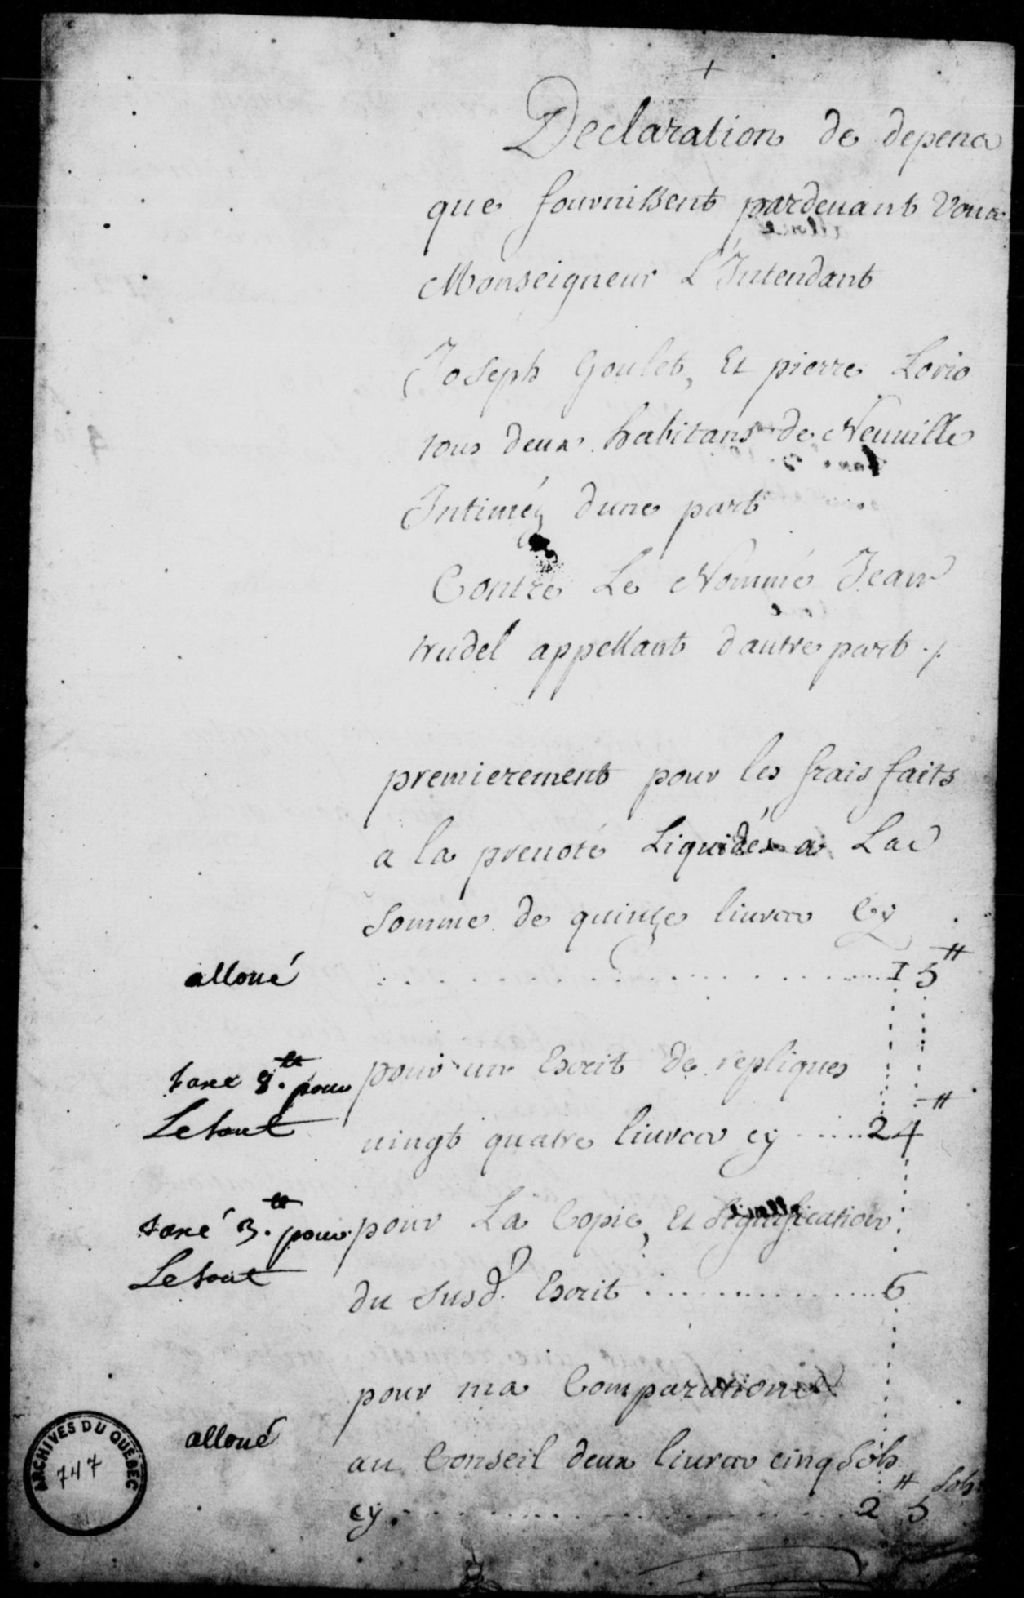 Declaration de depens
que fournissent pardevant Vous
Monseigneur L'Intendant
Joseph Goulet, Et pierre Lorio
tous deux habitans de Neuville
Intiméz dune part
Contre Le Nommé Jean
trudel appellant dautre part ./.
premierement pour les frais faits
a la prevoté Liquidés a La
Somme de quinze livres Cy
alloué ........ 15 ₶
taxé 8.₶ pour
Le tout
pour un Escrit de repliques
vingt quatre livres cy ..... 24 ₶
taxé 3.₶ pour
Le tout
pour La Copie, Et Signification
du Susd. Escrit ............ 6
alloué
pour ma Comparution
au Conseil deux livres cinq sols
cy ............ 2 ₶ 5 sols
ARCHIVES DU QUÉBEC
747